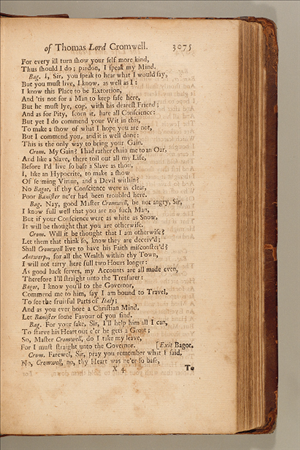 of Thomas Lord Cromwell. 3075
For every ill turn show your self more kind,
Thus should I do; pardon, I speak my Mind.
Bag. I, Sir, you speak to hear what I would say,
But you must live, I know, as well as I:
I know this Place to be Extortion,
And 'tis not for a Man to keep safe here,
But he must lye, cog, with his dearest Friend;
And as for Pity, scorn it, hate all Conscience:
But yet I do commend your Wit in this,
To make a show of what I hope you are not,
But I commend you, and it is well done:
This is the only way to bring your Gain.
Crom. My Gain! I had rather chain me to an Oar,
And like a Slave, there toil out all my Life,
Before I'd live so base a Slave as thou,
I, like an Hypocrite, to make a show
Of seeming Virtue, and a Devil within?
No Bagot, if thy Conscience were as clear,
Poor Banister ne'er had been troubled here.
Bag. Nay, good Master Cromwell, be not angry, Sir,
I know full well that you are no such Man,
But if your Conscience were as white as Snow,
It will be thought that you are otherwise.
Crom. Will it be thought that I am otherwise?
Let them that think so, know they are deceiv'd;
Shall Cromwell live to have his Faith misconstru'd?
Antwerp, for all the Wealth within thy Town,
I will not tarry here full two Hours longer:
As good luck serves, my Accounts are all made even,
Therefore I'll straight unto the Treasurer:
Bagot, I know you'll to the Governor,
Commend me to him, say I am bound to Travel,
To see the fruitful Parts of Italy;
And as you ever bore a Christian Mind,
Let Banister some Favour of you find.
Bag. For your sake, Sir, I'll help him all I can,
To starve his Heart out e'er he gets a Groat;
So, Master Cromwell, do I take my leave,
For I must straight unto the Governor. [Exit Bagot.
Crom. Farewel, Sir, pray you remember what I said.
No, Cromwell, no, thy Heart was ne'er so base,
X 4 To